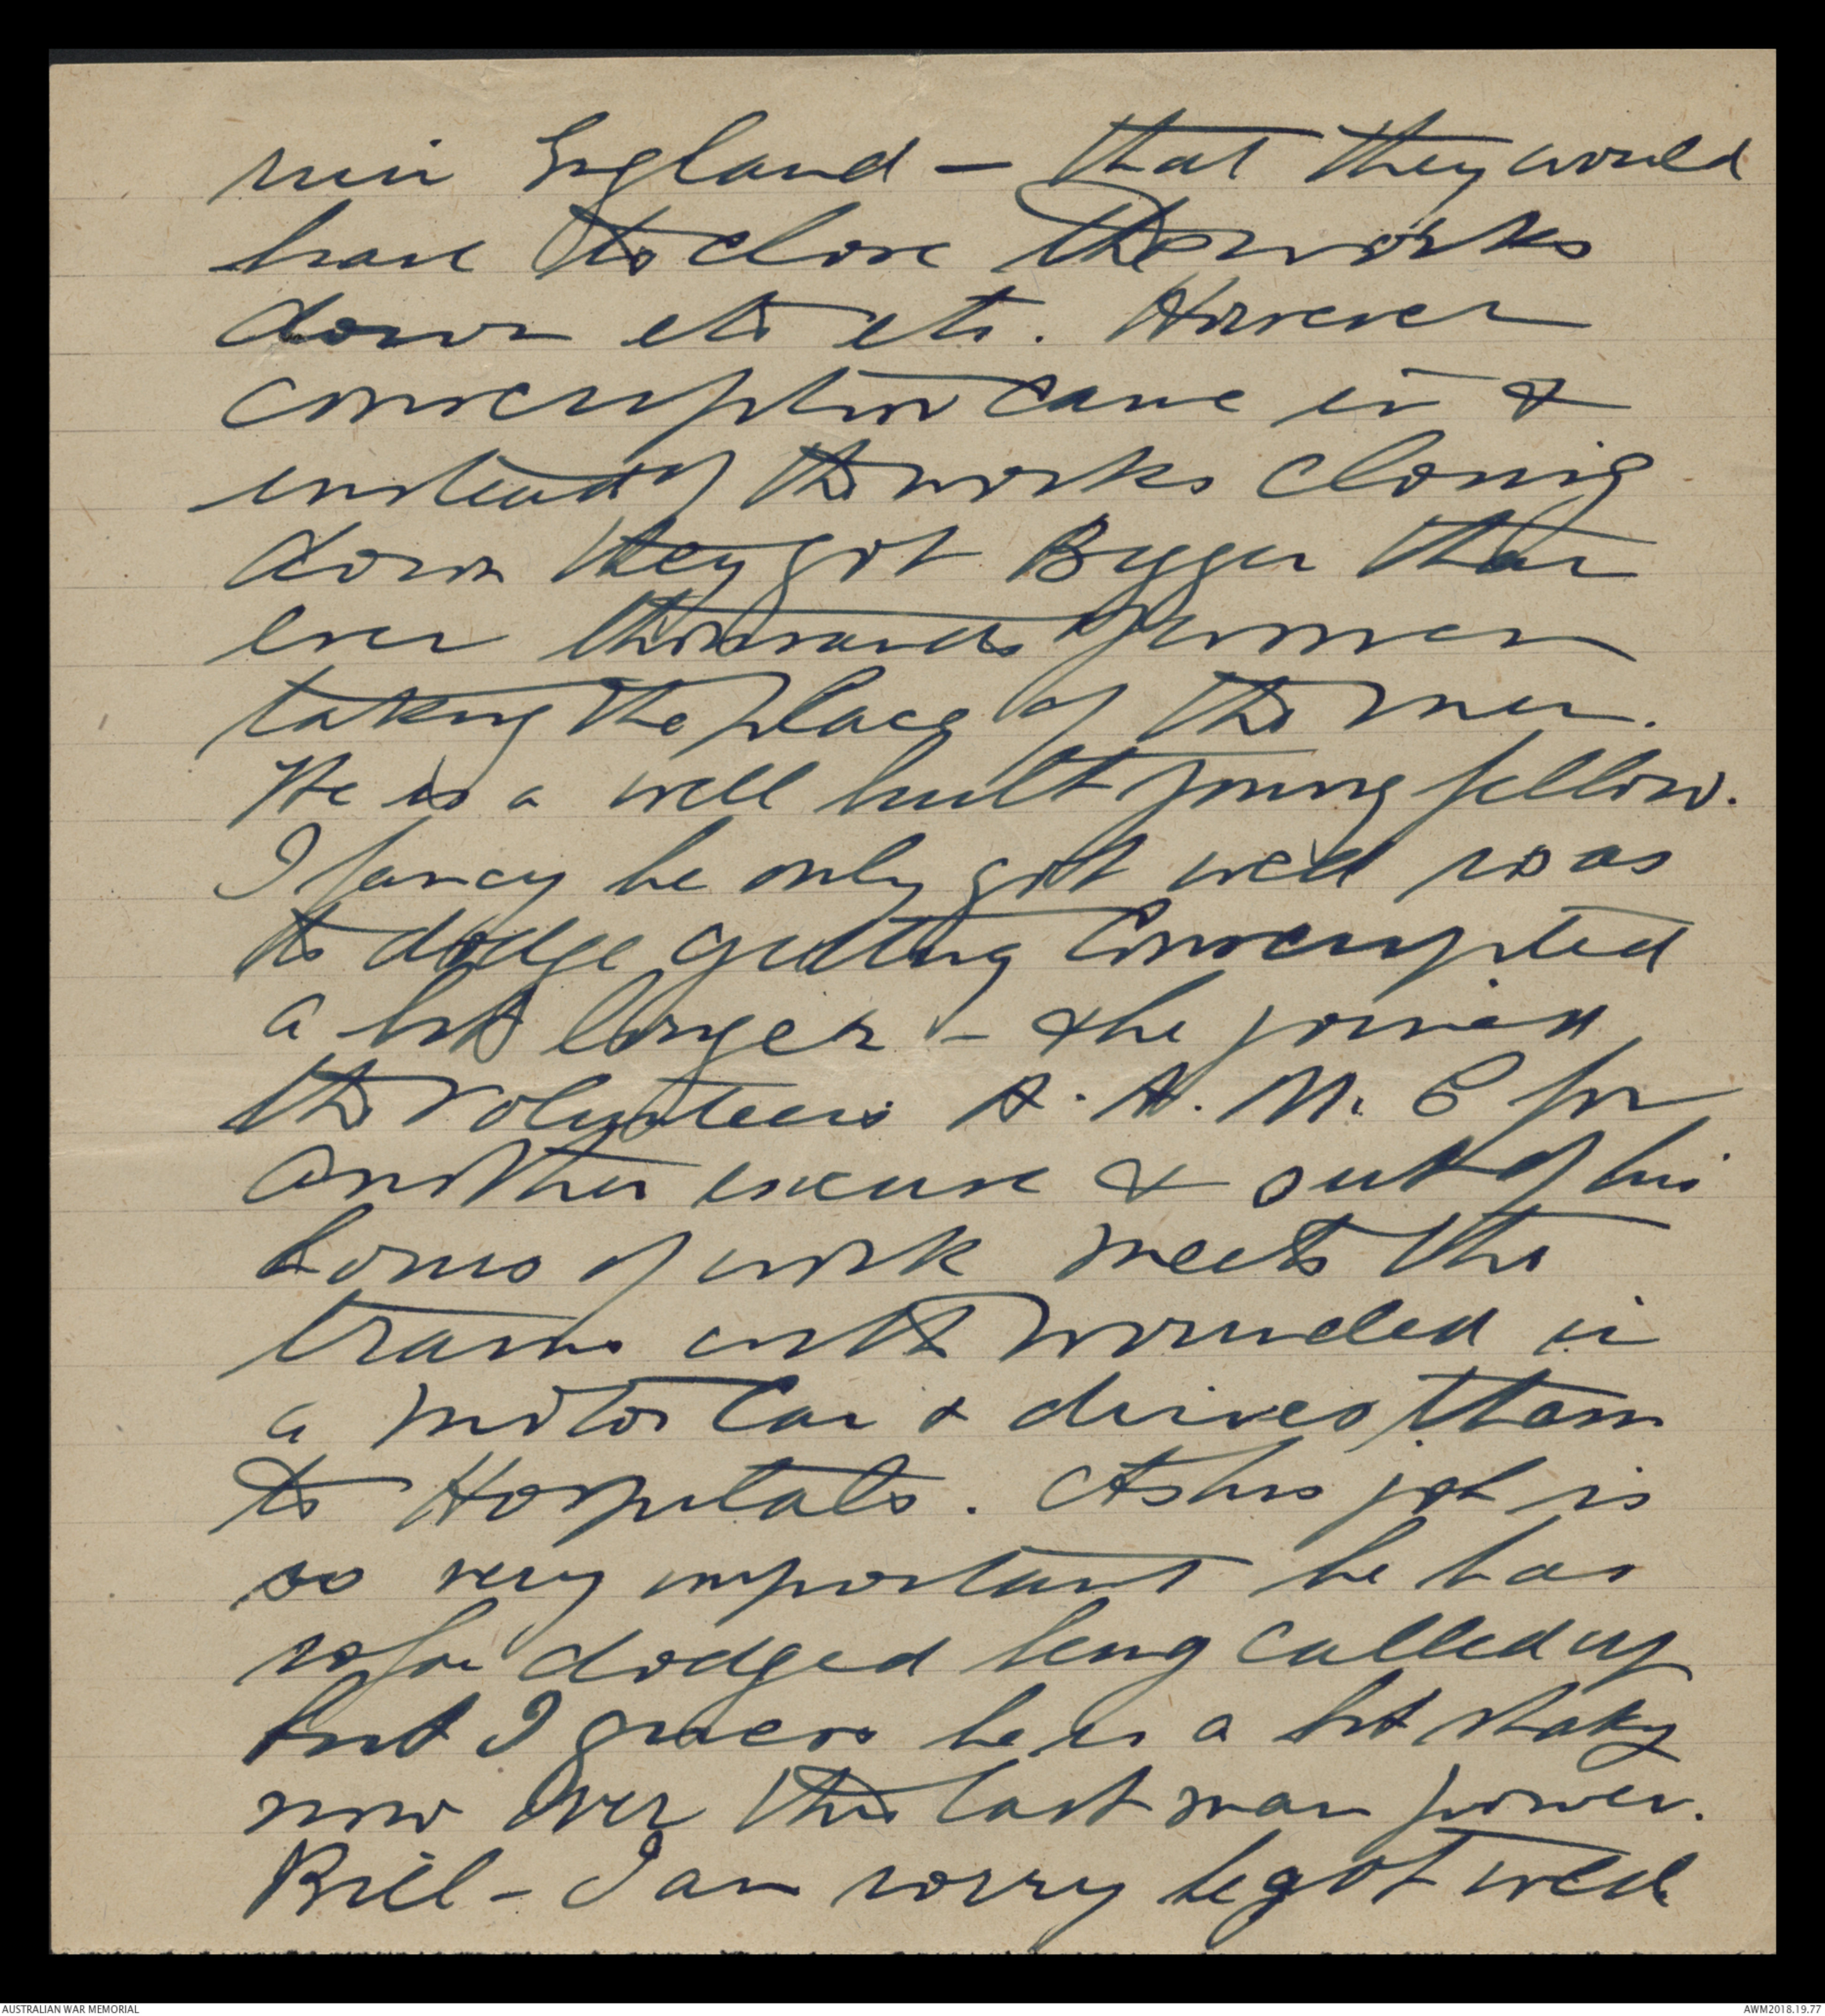 ruin England - that they would
have to close the works
down etc etc. However
conscription came in &
instead of the works closing
down they got Bigger than
ever thousands of women
taking the place of the men.
He is a well built young fellow.
I fancy he only got wed so as
to dodge getting Conscripted
a bit longer - & he joined
the volunteers R.A.M.C for
another excuse & out of his
hours of work meets the
trains with wounded in
a motor Car & drives them
to Hospitals. As his job is
so very important he has
so far dodged being called up
but I guess he is a bit shaky
now over this last man power.
Bill - I am sorry he got wed
AUSTRALIAN WAR MEMORIAL
AWM2018.19.77